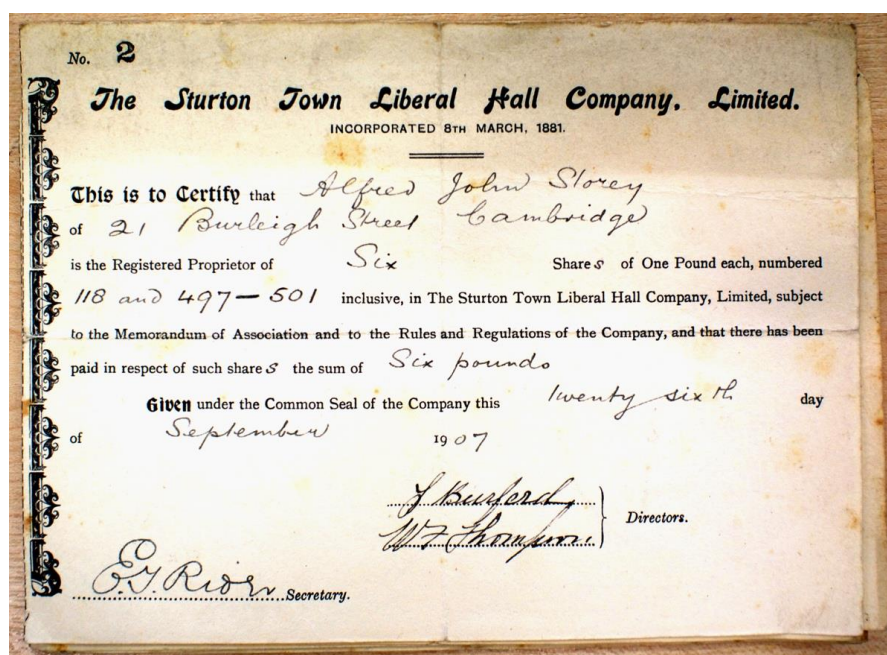 No. 2
The Sturton Town Liberal Hall Company, Limited.
INCORPORATED 8TH MARCH, 1881.
This is to Certify that Alfred John Storey
of 21 Burleigh Street Cambridge
is the Registered Proprietor of Six Shares of One Pound each, numbered
118 and 497-501 inclusive, in The Sturton Town Liberal Hall Company, Limited, subject
to the Memorandum of Association and to the Rules and Regulations of the Company, and that there has been
paid in respect of such shares the sum of Six pounds
Given under the Common Seal of the Company this twenty sixth day
of September 1907
J Burford
W F Thompson Directors.
E. J. Rider Secretary.